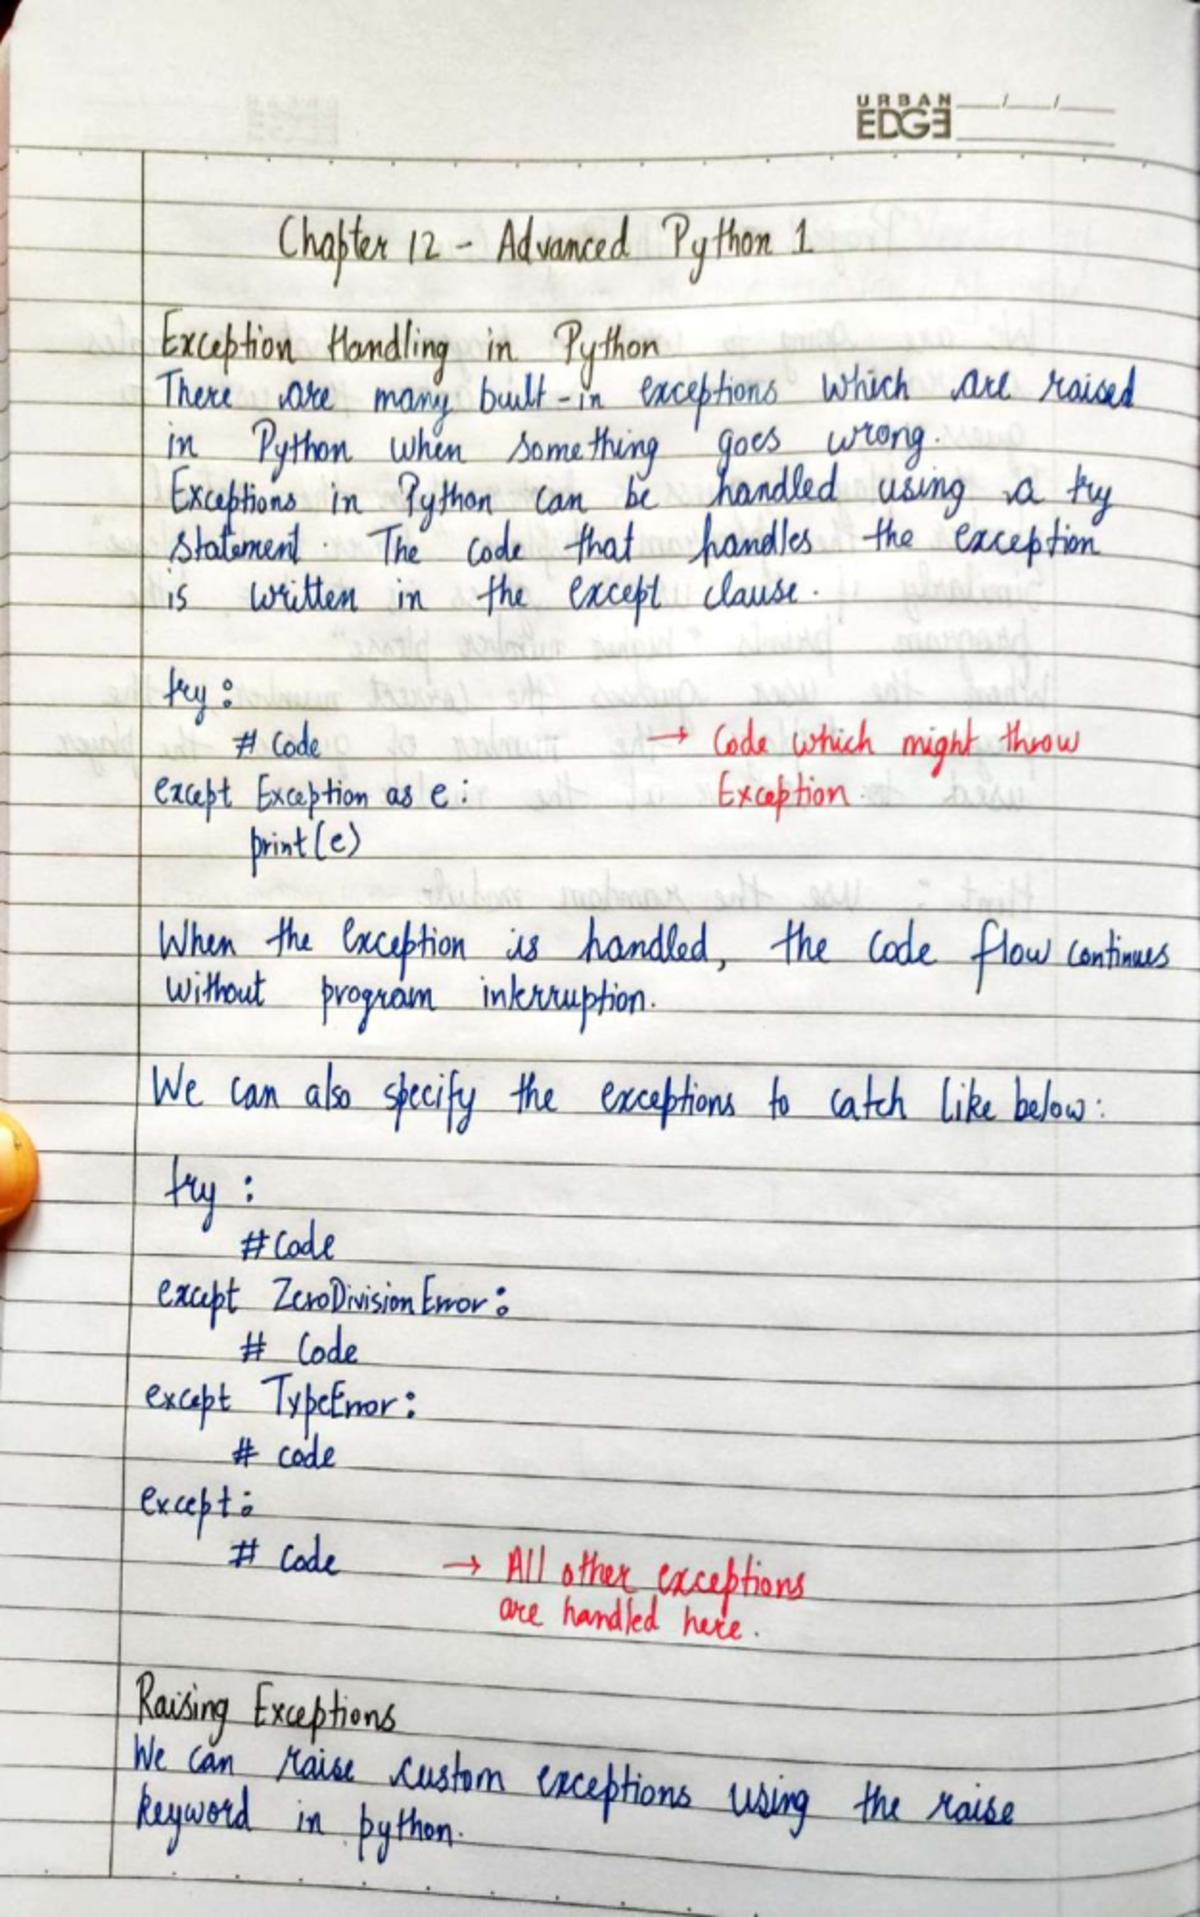 URBAN
EDGE
Chapter 12 - Advanced Python 1
Exception Handling in Python
There are many built-in exceptions which are raised
in Python when something goes wrong.
Exceptions in Python can be handled using a try
statement. The code that handles the exception
is written in the except clause.
try:
# Code → Code which might throw
except Exception as e: Exception.
print(e)
When the exception is handled, the code flow continues
without program interruption.
We can also specify the exceptions to catch like below:
try:
# Code
except ZeroDivisionError:
# Code
except TypeError:
# code
except:
# Code → All other exceptions
are handled here.
Raising Exceptions
We can raise custom exceptions using the raise
keyword in python.